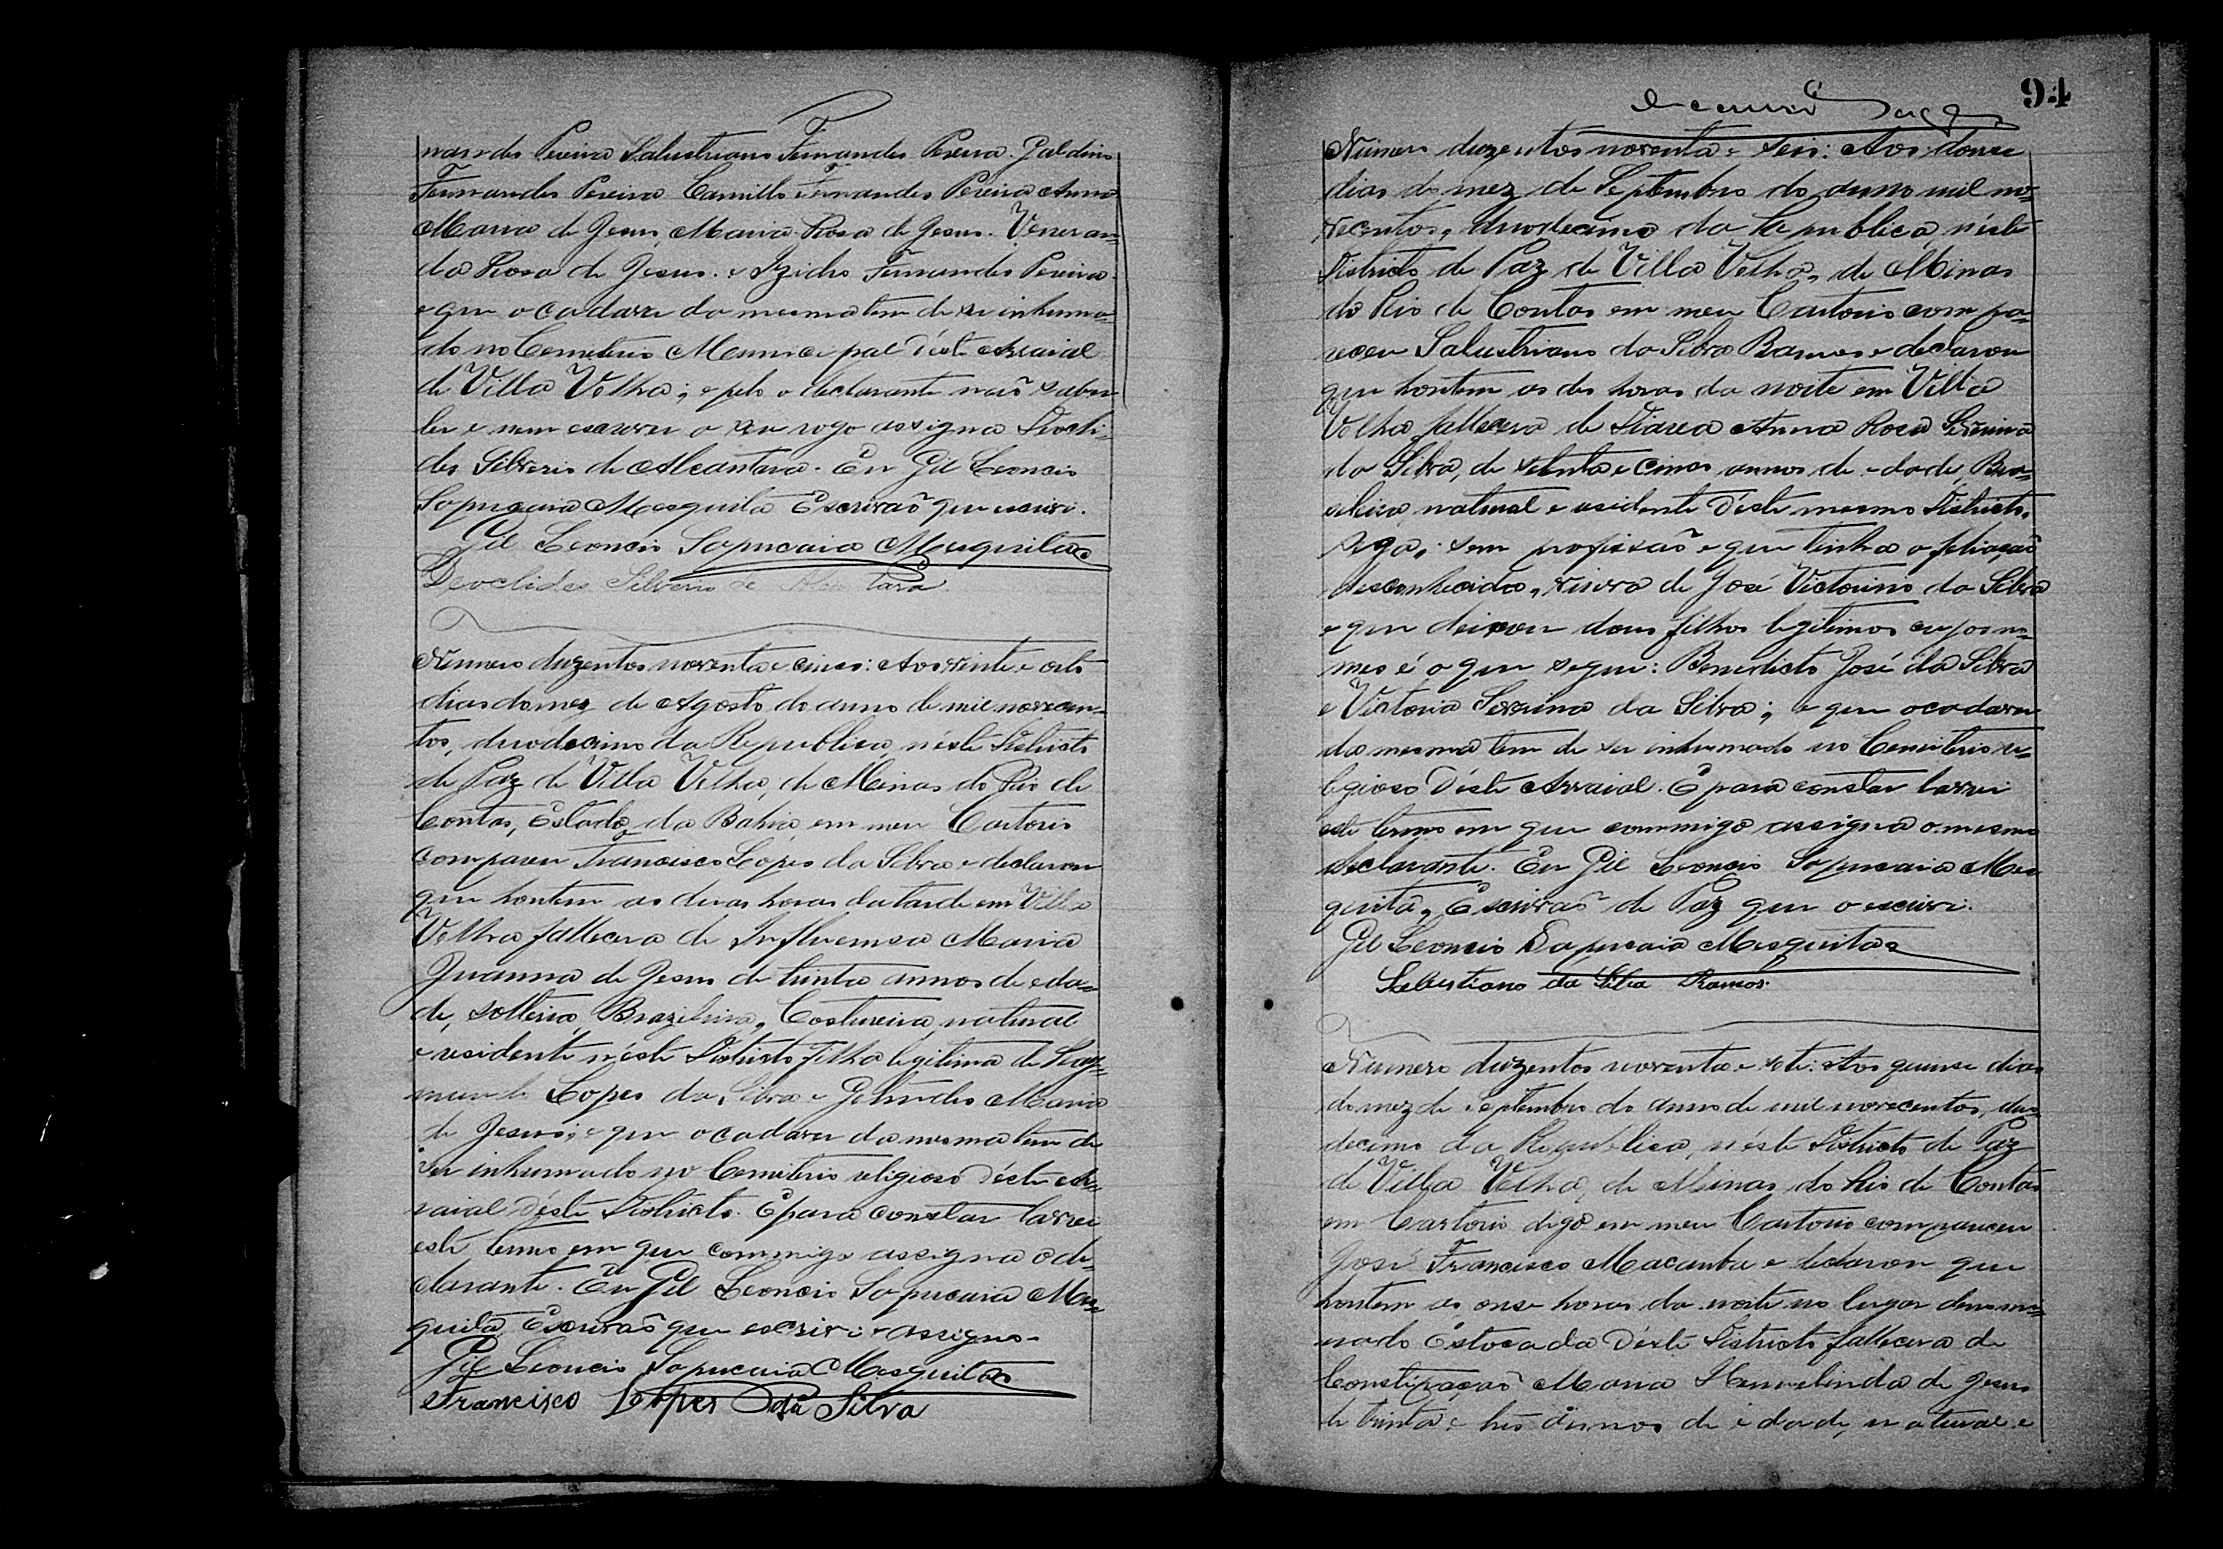 nandes Pereira Salustriano Fernandes Pereira. Galdino
Fernandes Pereira Camillo Fernandes Pereira Anna
Maria de Jesus, Maria Rosa de Jesus. Veneran=
da Rosa de Jesus. e Izidro Fernandes Pereira.
e que o cadaver da mesma tem de ser inhuma=
do no Cemiterio Municipal d'éste Arraial
de Villa Velha; e pelo o declarante não saber
ler e nem escrever a seu rogo assigna Deocli=
des Silverio de Alcantara. Eu Gil Leoncio
Sapucaia Mesquita Escrivão que escrivi.
Gil Leoncio Sapucaia Mesquita
Deoclides Silverio de Alcantara
Numero duzentos noventa e cinco: Aos vinte e oito
dias do mez de Agosto do anno de mil novecen=
tos, duodecimo da Republica, n'éste Districto
de Paz de Villa Velha, de Minas do Rio de
Contas, Estado da Bahia em meu Cartorio
compareu Francisco Lópes da Silva e declarou
que hontem as duas horas da tarde em Villa
Velha fallecera de Influemsa Maria
Juanna de Jesus de trinta annos de eda=
de, solteira, Brazileira, Costureira, natural
e residente n'éste Districto filha legitima de Ray=
mundo Lopes da Silva e Getrudes Maria
de Jesus; e que o cadaver da mesma tem de
ser inhumado no Cemiterio religioso d'éste Ar=
raial d'éste Districto. E para constar lavrei
este termo em que commigo assigna o de=
clarante. Eu Gil Leoncio Sapucaia Mes=
quita, Escrivão que escrivi e assigno.
Gil Leoncio Sapucaia Mesquita
Francisco Lopes da Silva
94
Numero duzentos noventa e seis: Aos donze
dias do mez de Septembro do anno mil no=
vecentos, duodecimo da Republica, n'éste
Districto de Paz de Villa Velha, de Minas
do Rio de Contas em meu Cartorio compa=
receu Salustriano da Silva Ramos e declarou
que hontem as des horas da noite em Villa
Velha fallecera de Diarea Anna Rosa Severina
da Silva, de setenta e cinco annos de edade, Bra=
sileira, natural e residente d'éste mesmo Districto.
sem profissão e que tinha a filiação
desconhecida, viuva de José Victorino da Silva
e que deixou dous filhos legitimos cujos no=
mes é o que segue: Benedicto José da Silva
e Victoria Severina da Silva; e que o cadaver
da mesma tem de ser inhumado no Cemiterio re=
ligioso d'éste Arraial. E para constar lavrei
este termo em que commigo assigna o mesmo
declarante. Eu Gil Leoncio Sapucaia Mes
quita, Escrivão de Paz que o escrivi.
Gil Leoncio Sapucaia Mesquita
Salustiano da Silva Ramos.
Numero duzentos noventa e sete: Aos quinse dias
do mez de Septembro do anno de mil novecentos, duo=
decimo da Republica, n'éste Districto de Paz
de Villa Velha, de Minas do Rio de Contas
em Cartorio digo em meu Cartorio compareceu
José Francisco Macamba e declarou que
hontem as onse horas da noite no lugar denomi=
nado Estocada d'éste Districto fallecera de
Constipação Maria Hermelinda de Jesus
de trinta e tres annos de idade, natural e